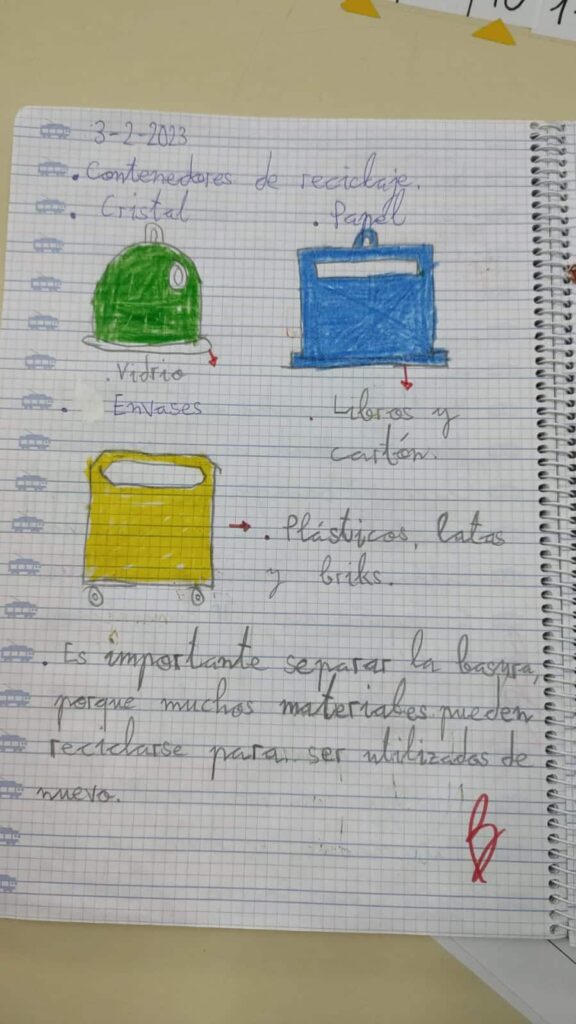 3-2-2023
. Contenedores de reciclaje.
. Cristal
. Papel
. Vidrio
. Envases
. Libros y
cartón.
. Plásticos, latas
y briks.
. Es importante separar la basura,
porque muchos materiales pueden
reciclarse para ser utilizados de
nuevo.
B